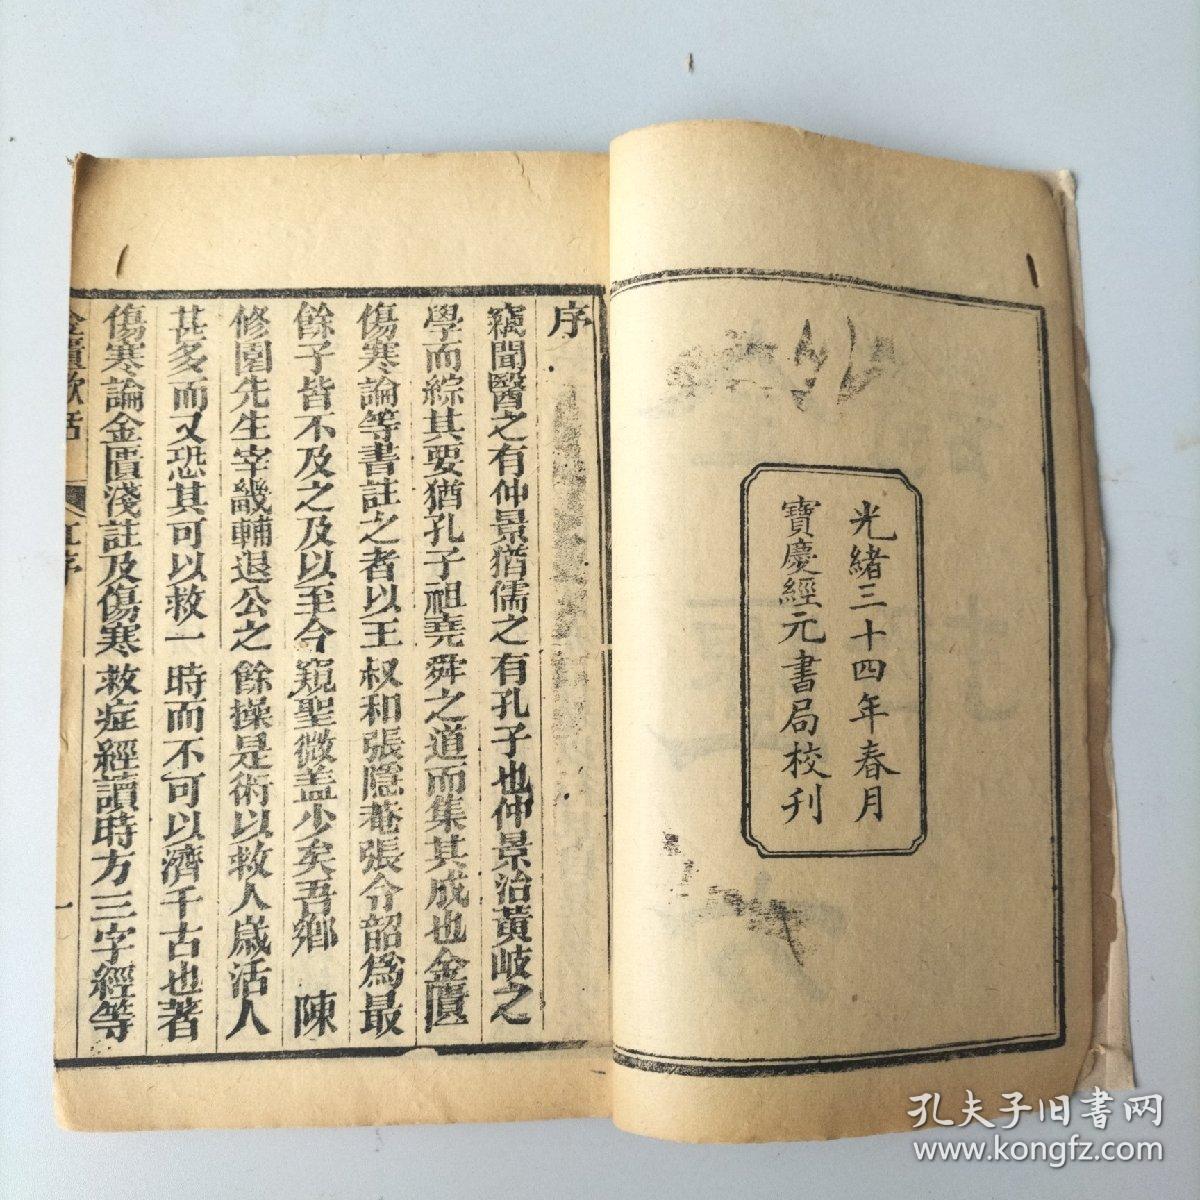 光緒三十四年春月
寶慶經元書局校刊
序
竊聞醫之有仲景猶儒之有孔子也仲景治黃岐之
學而綜其要猶孔子祖堯舜之道而集其成也金匱
傷寒論等書註之者以王叔和張隱菴張令韶爲最
餘子皆不及之及以至今窺聖微盖少矣吾鄉 陳
修園先生宰畿輔退公之餘操是術以救人歲活人
甚多而又恐其可以救一時而不可以濟千古也著
傷寒論金匱淺註及傷寒救症經讀時方三字經等
金匱歌括 序 一
孔夫子旧书网
www.kongfz.com